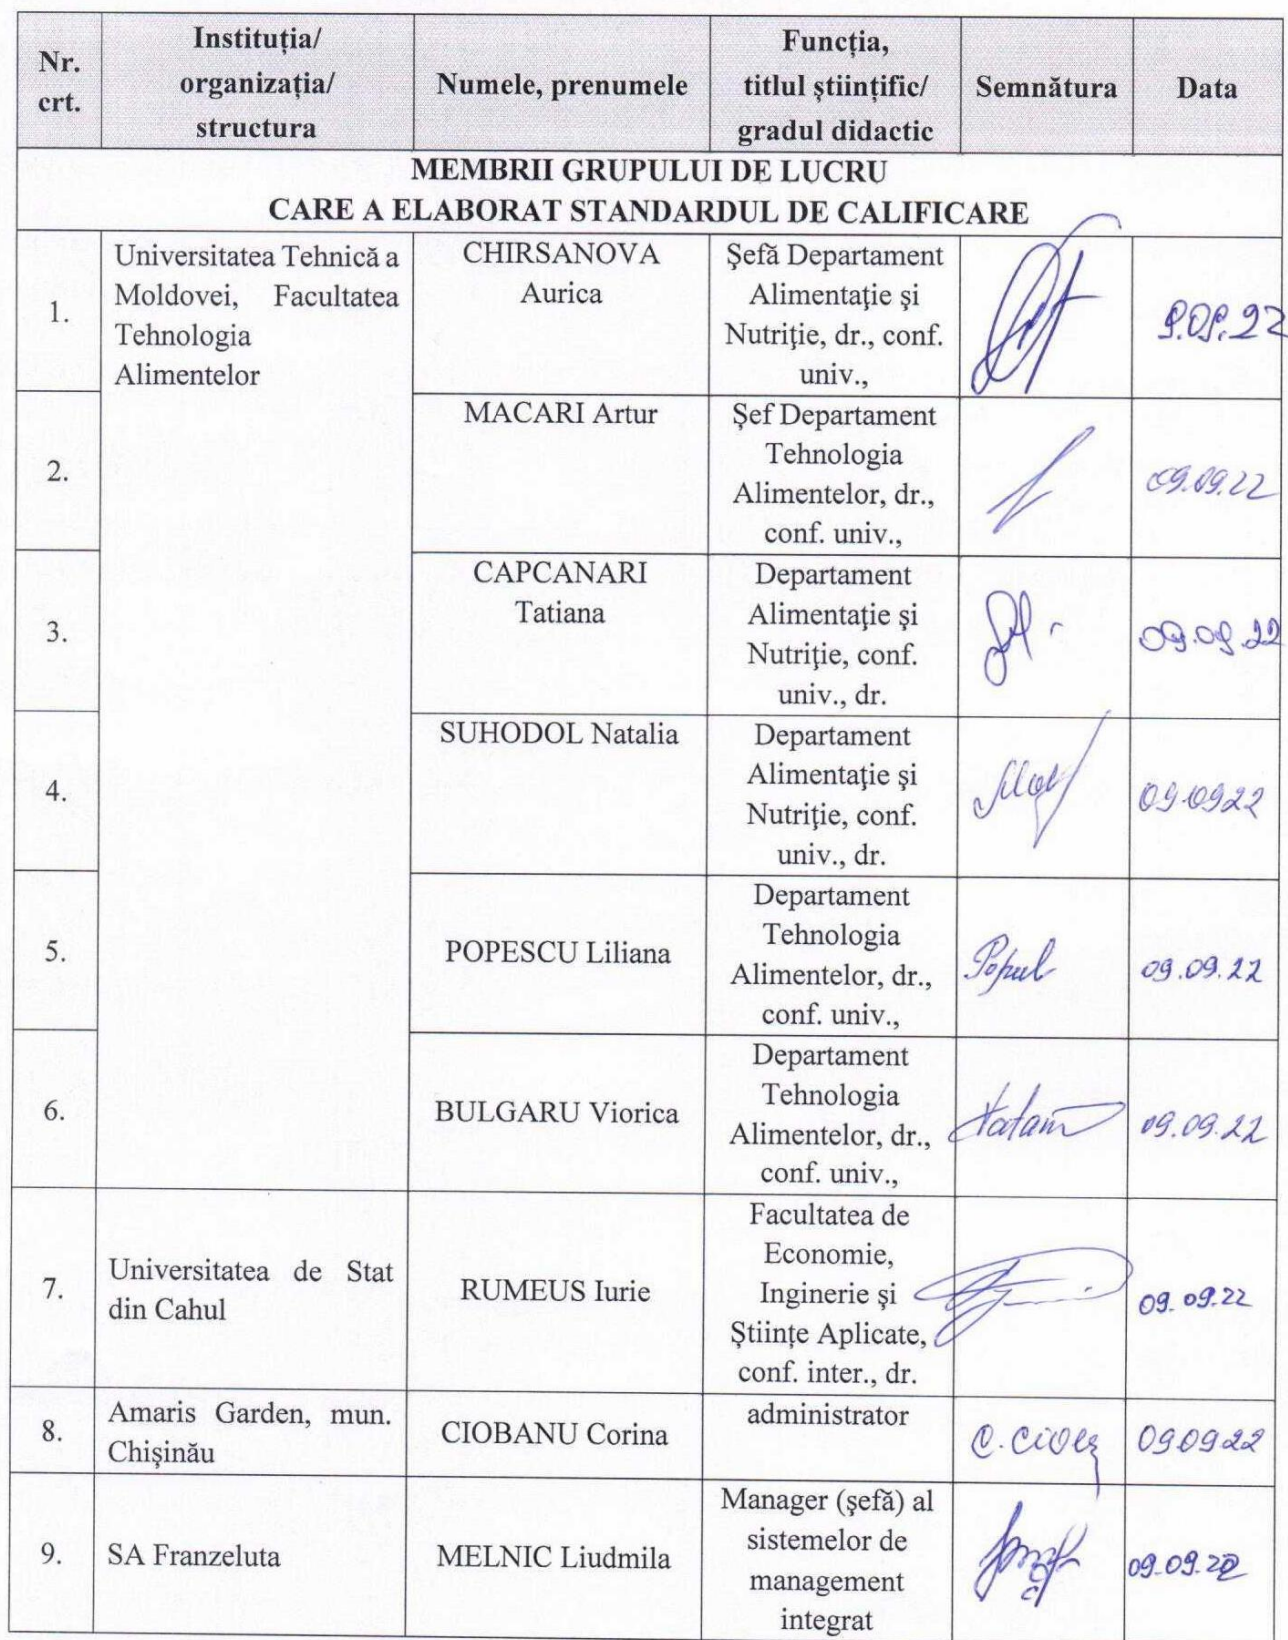 Nr.
crt.
Instituția/
organizația/
structura
Numele, prenumele
Funcția,
titlul științific/
gradul didactic
Semnătura
Data
MEMBRII GRUPULUI DE LUCRU
CARE A ELABORAT STANDARDUL DE CALIFICARE
1.
Universitatea Tehnică a
Moldovei, Facultatea
Tehnologia
Alimentelor
CHIRSANOVA
Aurica
Şefă Departament
Alimentaţie şi
Nutriţie, dr., conf.
univ.,
9.09.22
2.
MACARI Artur
Șef Departament
Tehnologia
Alimentelor, dr.,
conf. univ.,
09.09.22
3.
CAPCANARI
Tatiana
Departament
Alimentaţie şi
Nutriţie, conf.
univ., dr.
09.09.22
4.
SUHODOL Natalia
Departament
Alimentaţie şi
Nutriţie, conf.
univ., dr.
09.0922
5.
POPESCU Liliana
Departament
Tehnologia
Alimentelor, dr.,
conf. univ.,
09.09.22
6.
BULGARU Viorica
Departament
Tehnologia
Alimentelor, dr.,
conf. univ.,
09.09.22
7.
Universitatea de Stat
din Cahul
RUMEUS Iurie
Facultatea de
Economie,
Inginerie și
Științe Aplicate,
conf. inter., dr.
09.09.22
8.
Amaris Garden, mun.
Chișinău
CIOBANU Corina
administrator
090922
9.
SA Franzeluta
MELNIC Liudmila
Manager (șefă) al
sistemelor de
management
integrat
09.09.22